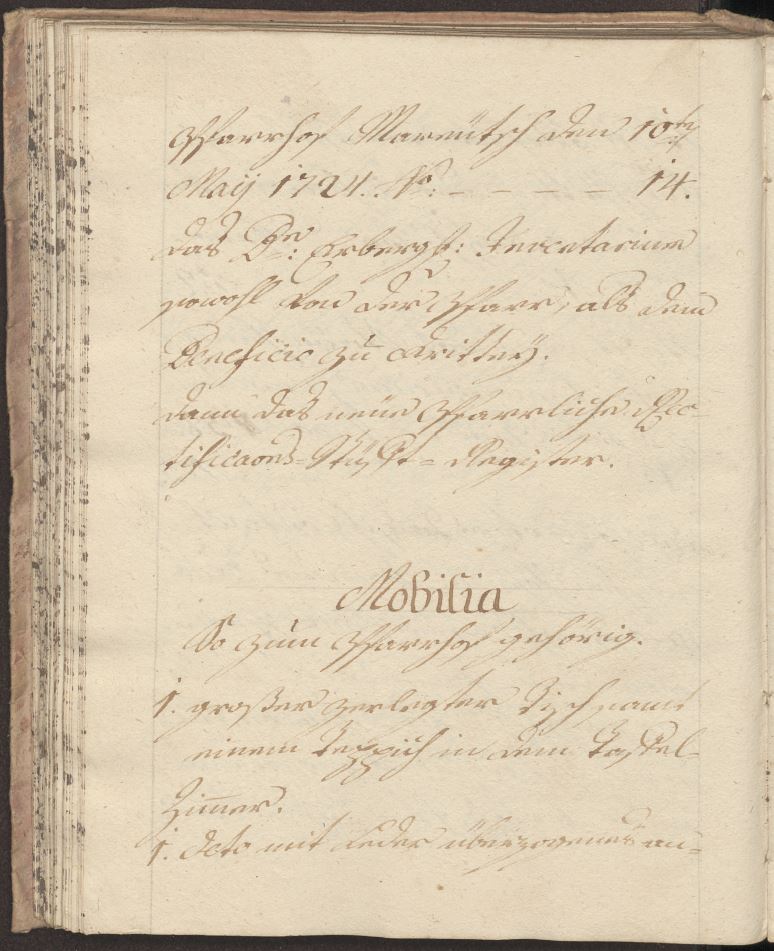 Pfarrhof Mareütsch den 10ten
Maÿ 1724. No: – – – – 14.
das Dne: Erbergl: Inventarium
sowohl von der Pfarr, als dem
Beneficio zu
dann das neüe Pfarrliche Rec-
tificaons-Stüfft-Register.
Mobilia
So zum Pfarrhof gehörig.
1. großer zerlegter Tisch samt
einem Teppich in dem Taffel-
Zimmer.
1. deto mit Leder überzogenes an=